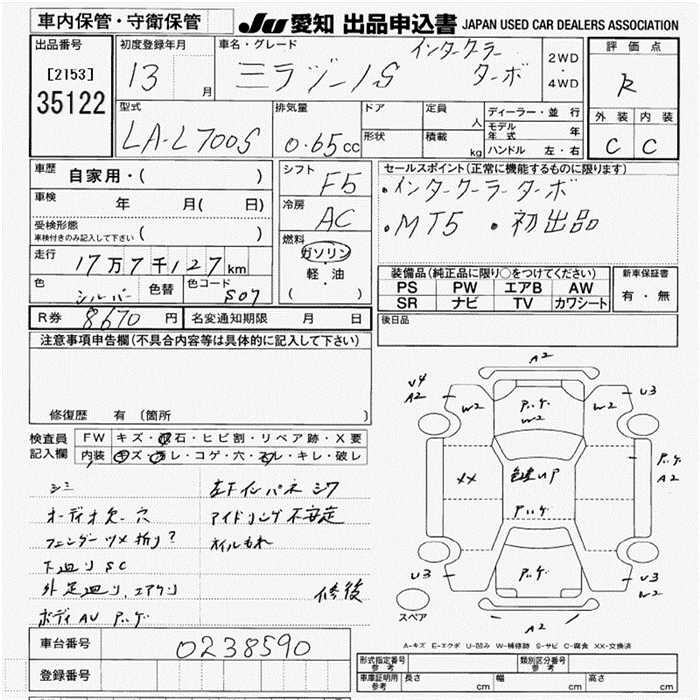 車内保管・守衛保管
JU 愛知 出品申込書 JAPAN USED CAR DEALERS ASSOCIATION
出品番号
[2153]
35122
初度登録年月
13 月
車名・グレード
ミラジーノS
インタークーラー
ターボ
2WD
・
4WD
評価点
R
外装 内装
C C
型式
LA-L700S
排気量
0.65cc
ドア
形状
定員
人
積載
kg
ディーラー・並行
モデル年式 年
ハンドル 左・右
車歴
自家用・( )
車検
年 月( 日)
受検形態
車検付きのみ記入して下さい ( )
走行
17万7千127km
色
シルバー
色替
色コード
S07
シフト
F5
冷房
AC
燃料
ガソリン
・
軽・油
( )
セールスポイント(正常に機能するものに限ります)
・インタークーラーターボ
・MT5 ・初出品
装備品(純正品に限り○をつけてください)
PS PW エアB AW
SR ナビ TV カワシート
新車保証書
有・無
R券 8670 円
名変通知期限 月 日
後日品
注意事項申告欄(不具合内容等は具体的に記入して下さい)
修復歴 有 (箇所
検査員
記入欄
FW キズ・飛石・ヒビ割・リペア跡・X要
内装 キズ・汚レ・コゲ・穴・スレ・キレ・破レ
シミ
左下インパネシワ
オーディオ欠 穴
アイドリング不安定
フェンダーツメ折り?
オイルもれ
下廻り SC
外足廻り、エアクリ
修後
ボディAU
A2
U4
A2
W2
W2
W2
U3
XX
A2
U3
U3
W2
A2
スペア
A-キズ E-エクボ U-凹み W-補修跡 S-サビ C-腐食 XX-交換済
車台番号
0238590
登録番号
形式指定番号
参考
類別区分番号
参考
車庫証明用
参考
長さ cm
幅 cm
高さ cm